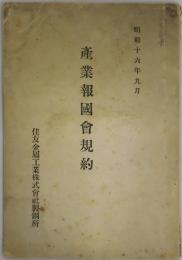 昭和十六年九月
產業報國會規約
住友金屬工業株式會社製鋼所